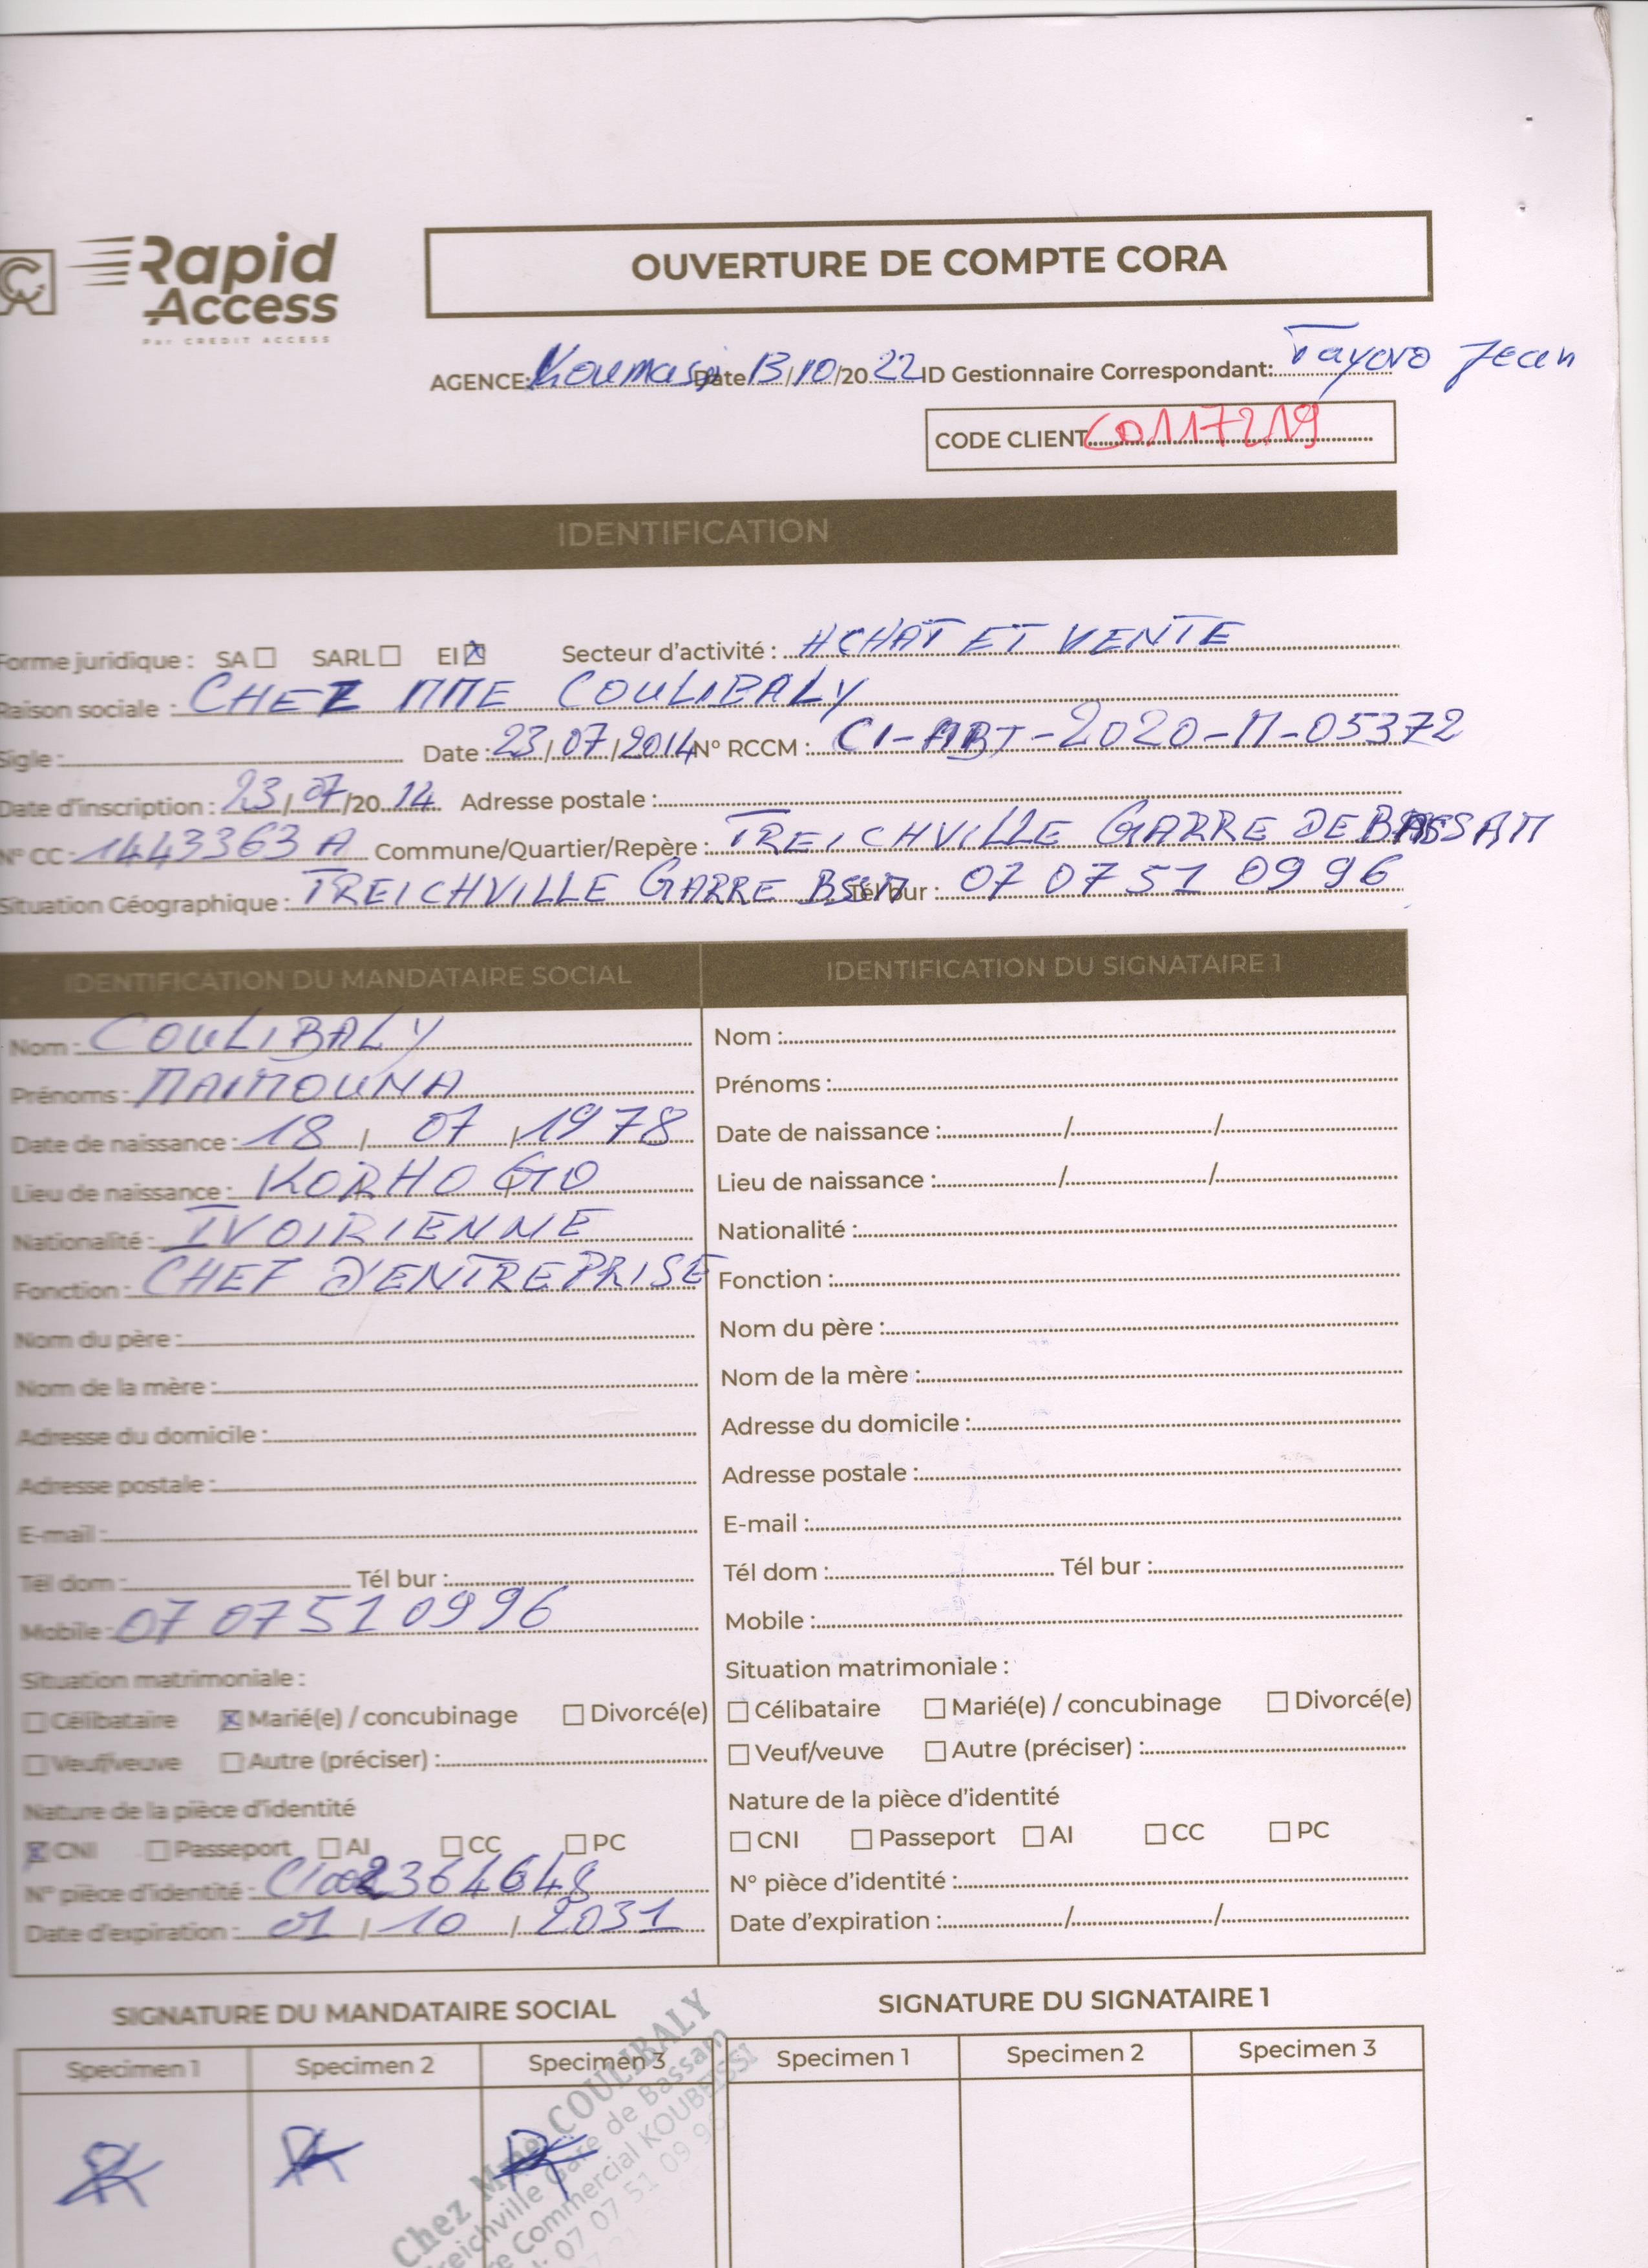 Rapid
Access
Par CREDIT ACCESS
OUVERTURE DE COMPTE CORA
AGENCE: Koumassi Date 13/10/2022 ID Gestionnaire Correspondant: Tayoro Jean
CODE CLIENT C0117219
IDENTIFICATION
Forme juridique : SA ☐ SARL ☐ EI ☒ Secteur d'activité : ACHAT ET VENTE
Raison sociale : CHEZ MME COULIBALY
Sigle : Date : 23/07/2014 N° RCCM : CI-ABJ-2020-M-05372
Date d'inscription : 23/07/2014 Adresse postale :
N° CC : 1443363 A Commune/Quartier/Repère : TREICHVILLE GARRE DE BASSAM
Situation Géographique : TREICHVILLE GARRE BSSM Tél bur : 07 07 51 09 96
IDENTIFICATION DU MANDATAIRE SOCIAL
Nom : COULIBALY
Prénoms : MAIMOUNA
Date de naissance : 18 / 07 / 1978
Lieu de naissance : KORHOGO
Nationalité : IVOIRIENNE
Fonction : CHEF D'ENTREPRISE
Nom du père :
Nom de la mère :
Adresse du domicile :
Adresse postale :
E-mail :
Tél dom : Tél bur :
Mobile : 07 07 51 09 96
Situation matrimoniale :
☐ Célibataire ☒ Marié(e) / concubinage ☐ Divorcé(e)
☐ Veuf/veuve ☐ Autre (préciser) :
Nature de la pièce d'identité
☒ CNI ☐ Passeport ☐ AI ☐ CC ☐ PC
N° pièce d'identité :
Date d'expiration : 01 / 10 / 2031
IDENTIFICATION DU SIGNATAIRE 1
Nom :
Prénoms :
Date de naissance : / /
Lieu de naissance : / /
Nationalité :
Fonction :
Nom du père :
Nom de la mère :
Adresse du domicile :
Adresse postale :
E-mail :
Tél dom : Tél bur :
Mobile :
Situation matrimoniale :
☐ Célibataire ☐ Marié(e) / concubinage ☐ Divorcé(e)
☐ Veuf/veuve ☐ Autre (préciser) :
Nature de la pièce d'identité
☐ CNI ☐ Passeport ☐ AI ☐ CC ☐ PC
N° pièce d'identité :
Date d'expiration : / /
SIGNATURE DU MANDATAIRE SOCIAL
Specimen 1 Specimen 2 Specimen 3
SIGNATURE DU SIGNATAIRE 1
Specimen 1 Specimen 2 Specimen 3
Chez Mme COULIBALY
reichville Gare de Bassam
re Commercial KOUBEISSI
l: 07 07 51 09 96